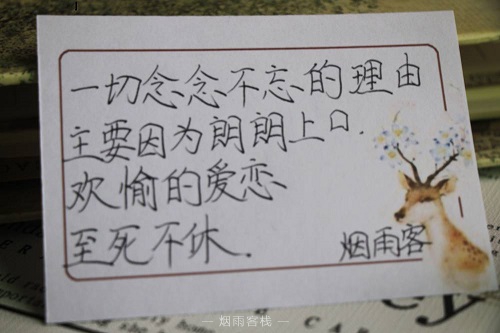 一切念念不忘的理由
主要因为朗朗上口.
欢愉的爱恋
至死不休.
烟雨客
— 烟雨客栈 —